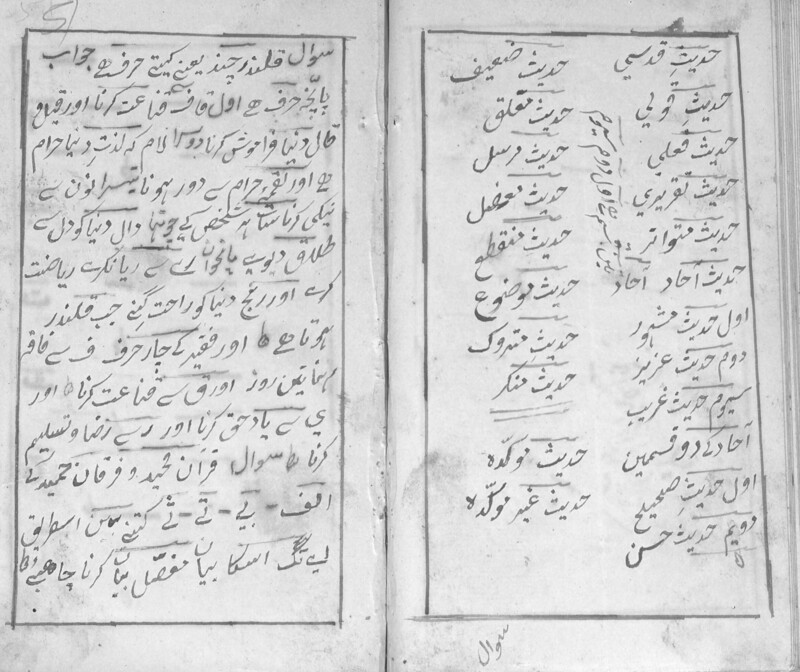 حدیثِ قدسی
حدیثِ قولی
حدیثِ فعلی
حدیث تقریری
حدیث متواتر
حدیث آحاد آحاد
اول حدیث مشہور
دوم حدیث عزیز
سیوم حدیث غریب
آحاد کے دو قسمین
اول حدیثِ صحیح
دویم حدیث حسن
حدیث ضعیف
حدیث معلق
حدیث مرسل
حدیث معضل
حدیث منقطع
حدیث موضوع
حدیث متروک
حدیث منکر
حدیث موکّدہ
حدیث غیر موکّدہ
سوال
سوال قلندر چند یعنے کیتے حرف ہے جواب
پانچہ حرف ہے اول قاف قناعت کرنا اور قیل و
قال دنیا فراموش کرنا دوسرا لام کہ لذتِ دنیا حرام
ہے اور لقمہ حرام سے دور ہونا تیسرا نون سے
نیکی کرنا سات ہر شخص کے چوتھا دال دنیا کو دل سے
طلاق دیوے پانچواں رے سے ریا نکرے ریاضت
کرے اور رنج دنیا کو راحت گنے جب قلندر
ہوتا ہے اور فقیر کے چار حرف ف سے فاقہ
رہنا تین روز اور ق سے قناعت کرنا اور
ي سے یاد حق کرنا اور رے رضا و تسلیم
کرنا سوال قرآن مجید و فرقان حمید کے
الف - بے - تے - ثے کتنے ہین اسطریق
لے تگ اسکا بیان مفصّل بیان کرنا چاھیے